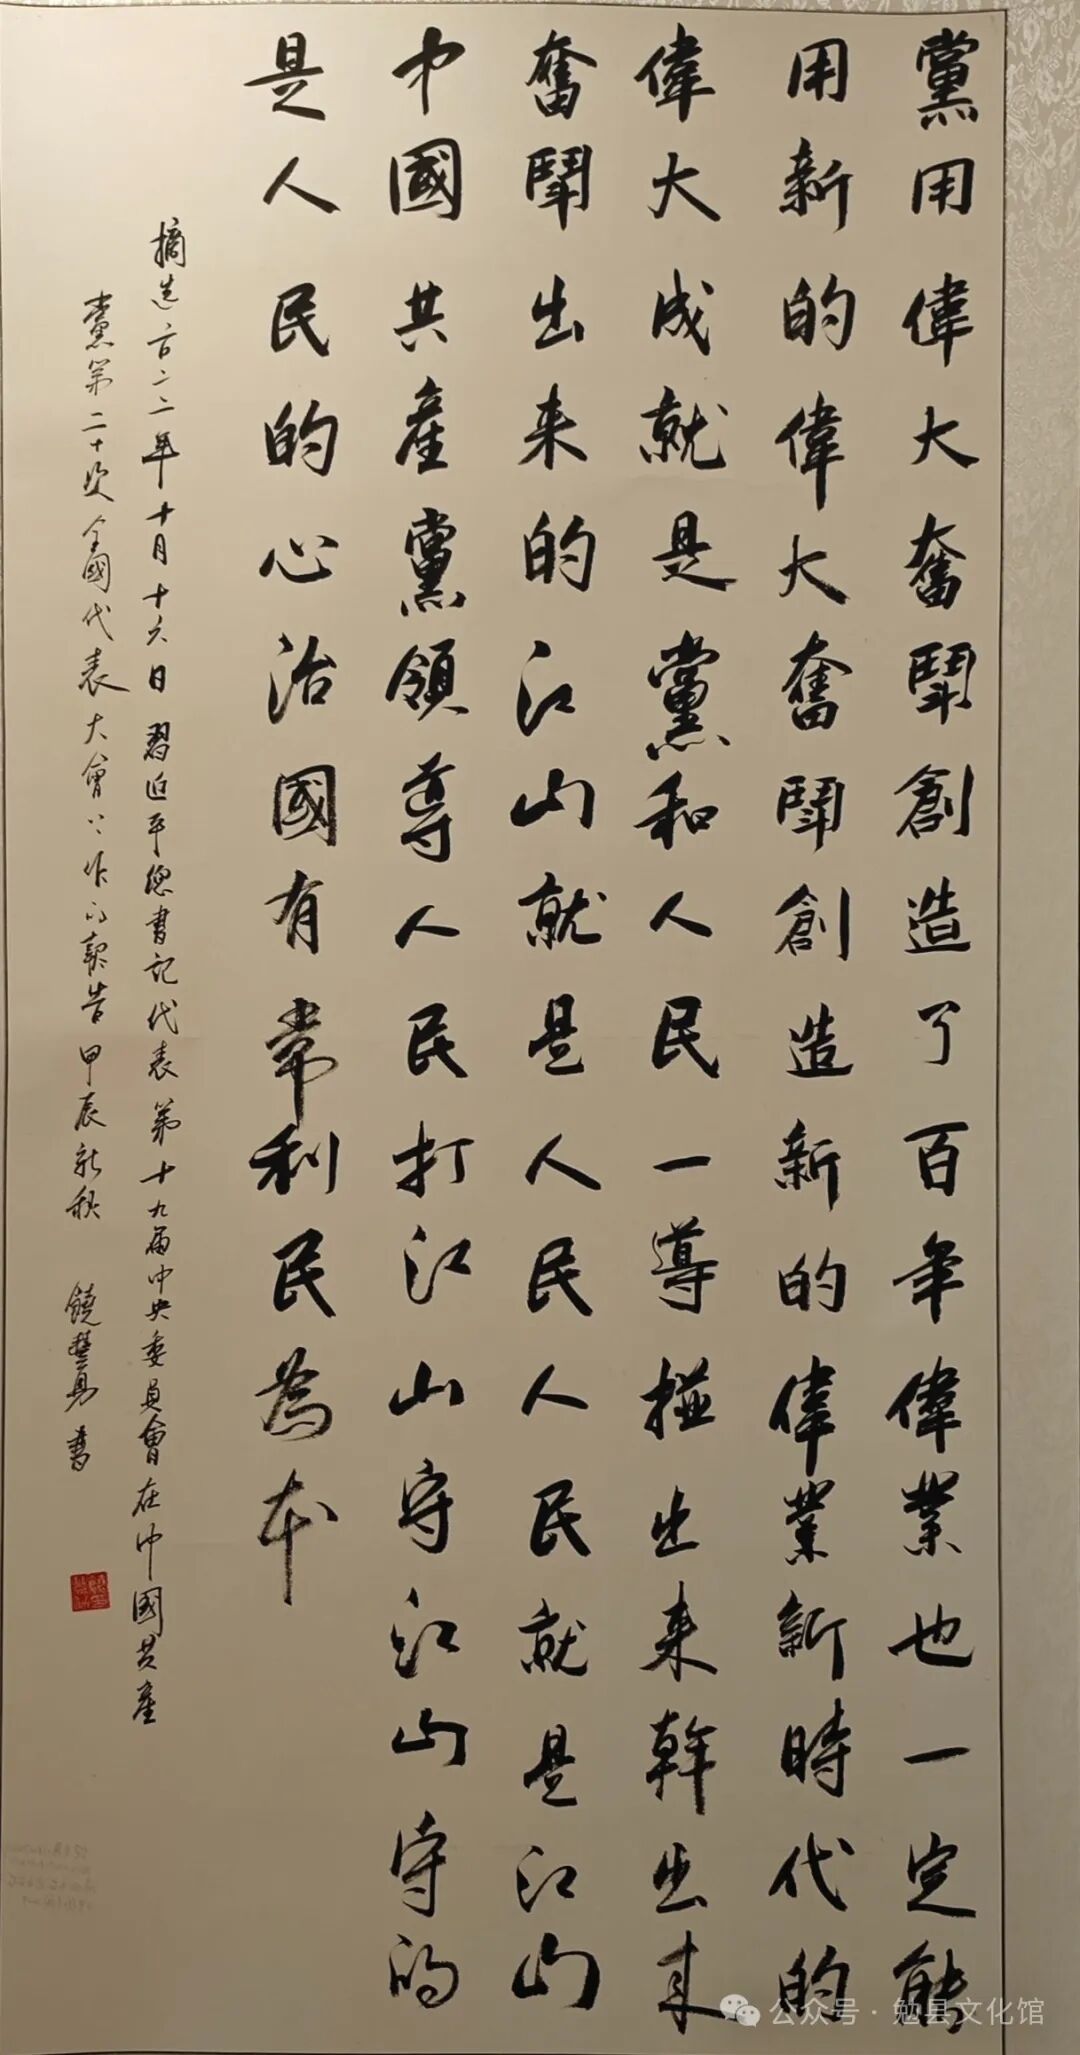 黨用偉大奮鬪創造了百年偉業也一定能
用新的偉大奮鬪創造新的偉業新時代的
偉大成就是黨和人民一導掽出来幹出来
奮鬪出来的江山就是人民人民就是江山
中國共産黨領導人民打江山守江山守的
是人民的心治國有常利民為本
摘選二〇二二年十月十六日習近平總書記代表第十九届中央委員會在中國共産
黨第二十次全國代表大會上作的報告甲辰新秋 饒書
公众号·勉县文化馆